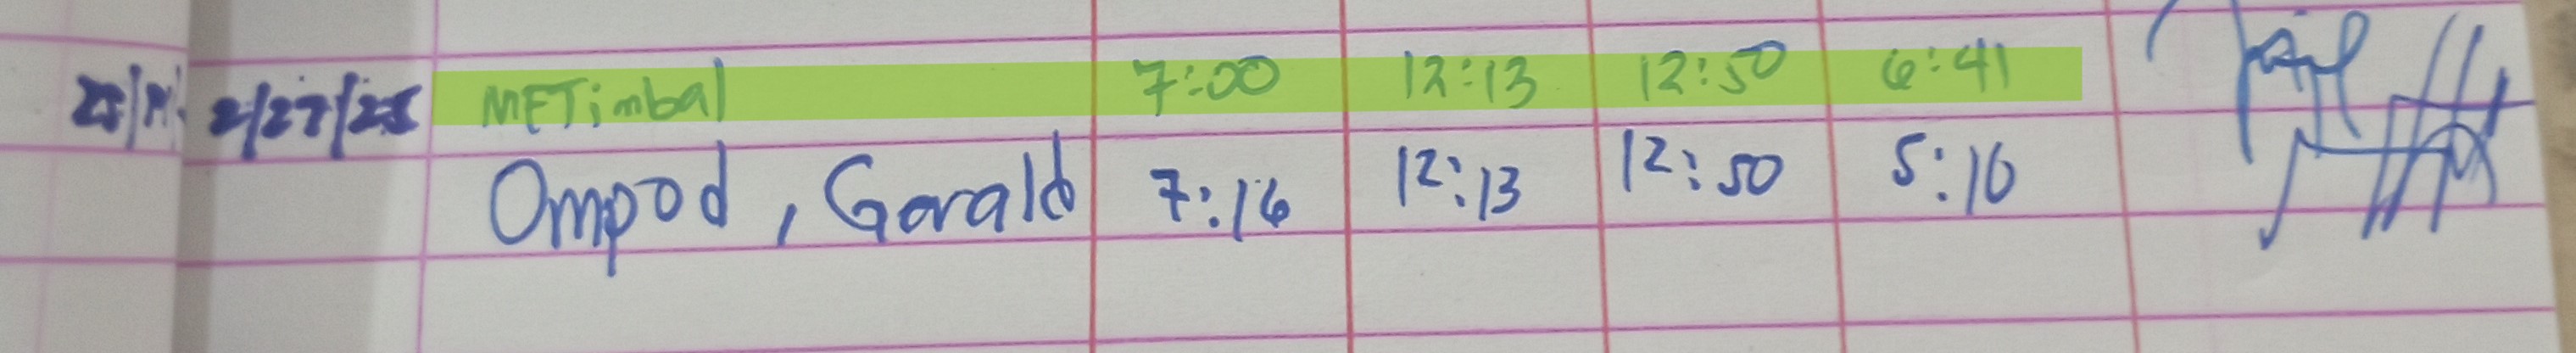 2/27/25 METimbal 7:00 12:13 12:50 6:41
Ompod, Gerald 7:16 12:13 12:50 5:10